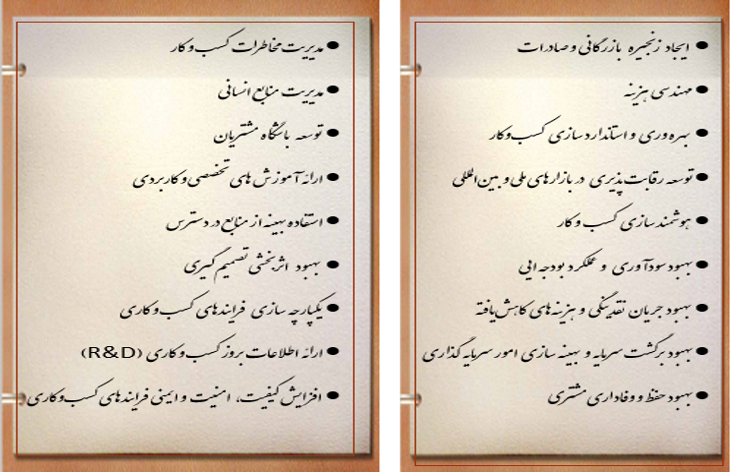 ایجاد زنجیره بازرگانی و صادرات
مهندسی هزینه
بهره وری و استاندارد سازی کسب وکار
توسعه رقابت پذیری در بازارهای ملی و بین المللی
هوشمند سازی کسب و کار
بهبود سودآوری و عملکرد بودجه ایی
بهبود جریان نقدینگی و هزینه های کاهش یافته
بهبود برگشت سرمایه و بهینه سازی امور سرمایه گذاری
بهبود حفظ و وفاداری مشتری
مدیریت مخاطرات کسب و کار
مدیریت منابع انسانی
توسعه باشگاه مشتریان
ارائه آموزش های تخصصی و کاربردی
استفاده بهینه از منابع در دسترس
بهبود اثربخشی تصمیم گیری
یکپارچه سازی فرایندهای کسب وکاری
ارائه اطلاعات بروز کسب و کاری (R&D)
افزایش کیفیت، امنیت و ایمنی فرایندهای کسب وکاری